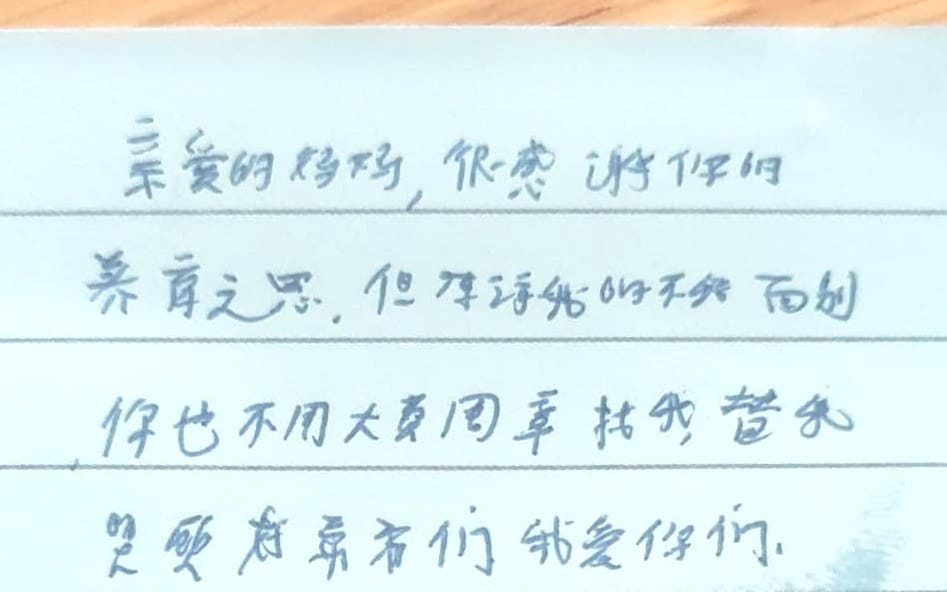 亲爱的妈妈,很感谢你的
养育之恩.但原谅我的不辞而别
你也不用大费周章找我,替我
照顾好弟弟们 我爱你们.